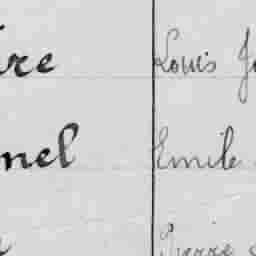 ire Louis Jo
nel Emile
Pierre